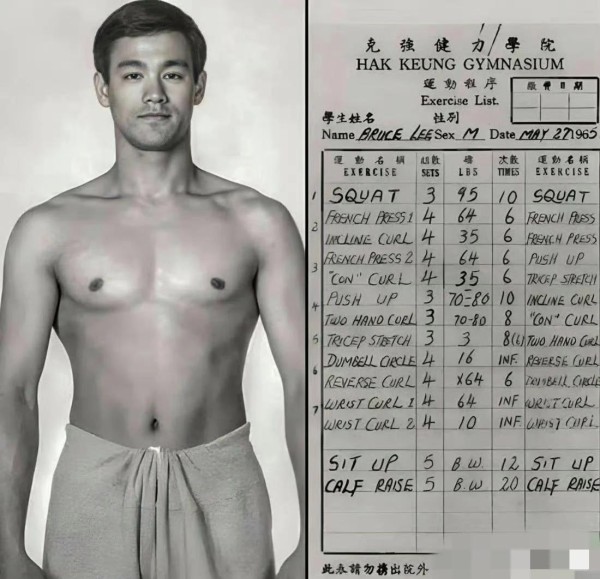 克強健力學院
HAK KEUNG GYMNASIUM
運動程序
Exercise List.
繳費日期
學生姓名 性别
Name BRUCE LEE Sex M Date MAY 27 1965
運動名稱 組數 磅 次數 運動名稱
EXERCISE SETS LBS TIMES EXERCISE
1 SQUAT 3 95 10 SQUAT
2 FRENCH PRESS 1 4 64 6 FRENCH PRESS
INCLINE CURL 4 35 6 FRENCH PRESS
3 FRENCH PRESS 2 4 64 6 PUSH UP
"CON" CURL 4 35 6 TRICEP STRETCH
4 PUSH UP 3 70-80 10 INCLINE CURL
TWO HAND CURL 3 70-80 8 "CON" CURL
5 TRICEP STRETCH 3 3 TWO HAND CURL
6 DUMBELL CIRCLE 4 16 INF. REVERSE CURL
REVERSE CURL 4 X64 6 DUMBELL CIRCLE
7 WRIST CURL 1 4 64 INF WRIST CURL
WRIST CURL 2 4 10 INF WRIST CURL
SIT UP 5 B.W. 12 SIT UP
CALF RAISE 5 B.W 20 CALF RAISE
此表請勿携出院外